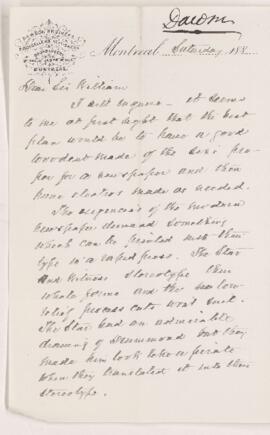 Dawson
Montreal Saturday 188
Dear Sir William
I will enquire — it seems
to me at first sight that the best
plan would be to have a good
woodcut made of the size pro-
per for a newspaper and then
have electros made as needed.
The exigencies of the modern
newspaper demand something
which can be printed with their
type in a rapid press. The Star
and Witness stereotype their
whole forms and the low
relief process cuts won't suit.
The Star had an admirable
drawing of Drummond but they
made him look like a pirate
when they translated it into their
stereotype.